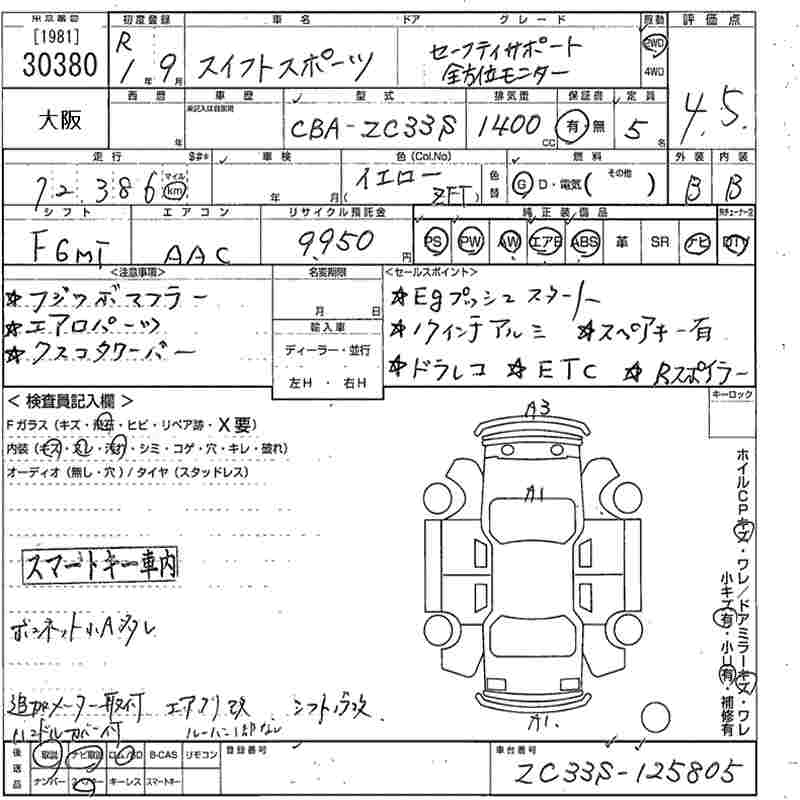 [1981]
30380
大阪
初度登録 車名 ドア グレード 駆動 評価点
R 1年 9月
スイフトスポーツ
セーフティサポート
全方位モニター
2WD
4WD
4.5
西暦 車歴 型式 排気量 保証書 定員
未記入は自家用
年
CBA-ZC33S
1400 CC
有・無
5 名
走行 $#* 車検 色(Col.No) 燃料 外装 内装
72,386 マイル km
年 月
イエロー
( ZFT )
色替
G D・電気( その他 )
B B
シフト エアコン リサイクル預託金 純正装備品
F6MT AAC 9950 円
PS PW AW エアB ABS 革 SR ナビ DTV
<注意事項> 名変期限 <セールスポイント>
☆フジツボマフラー
☆エアロパーツ
☆クスコタワーバー
月 日
輸入車
ディーラー・並行
左H ・ 右H
☆Egプッシュスタート
☆17インチアルミ ☆スペアキー有
☆ドラレコ ☆ETC ☆Rスポイラー
キーロック
< 検査員記入欄 >
Fガラス(キズ・飛石・ヒビ・リペア跡・X要)
内装(キズ・スレ・汚れ・シミ・コゲ・穴・キレ・破れ)
オーディオ(無し・穴)/タイヤ(スタッドレス)
スマートキー車内
A3
A1
A1
ホイルCPキズ・ワレ/ドアミラーキズ・ワレ
小キズ有・小U有・補修有
追加メーター取付 エアクリ改 シフトノブ改
ハンドルカバー付
後送品
取説 ナビ取説 ロム/SD B-CAS リモコン
ナンバー スペアキー キーレス スマートキー
登録番号
車台番号
ZC33S-125805